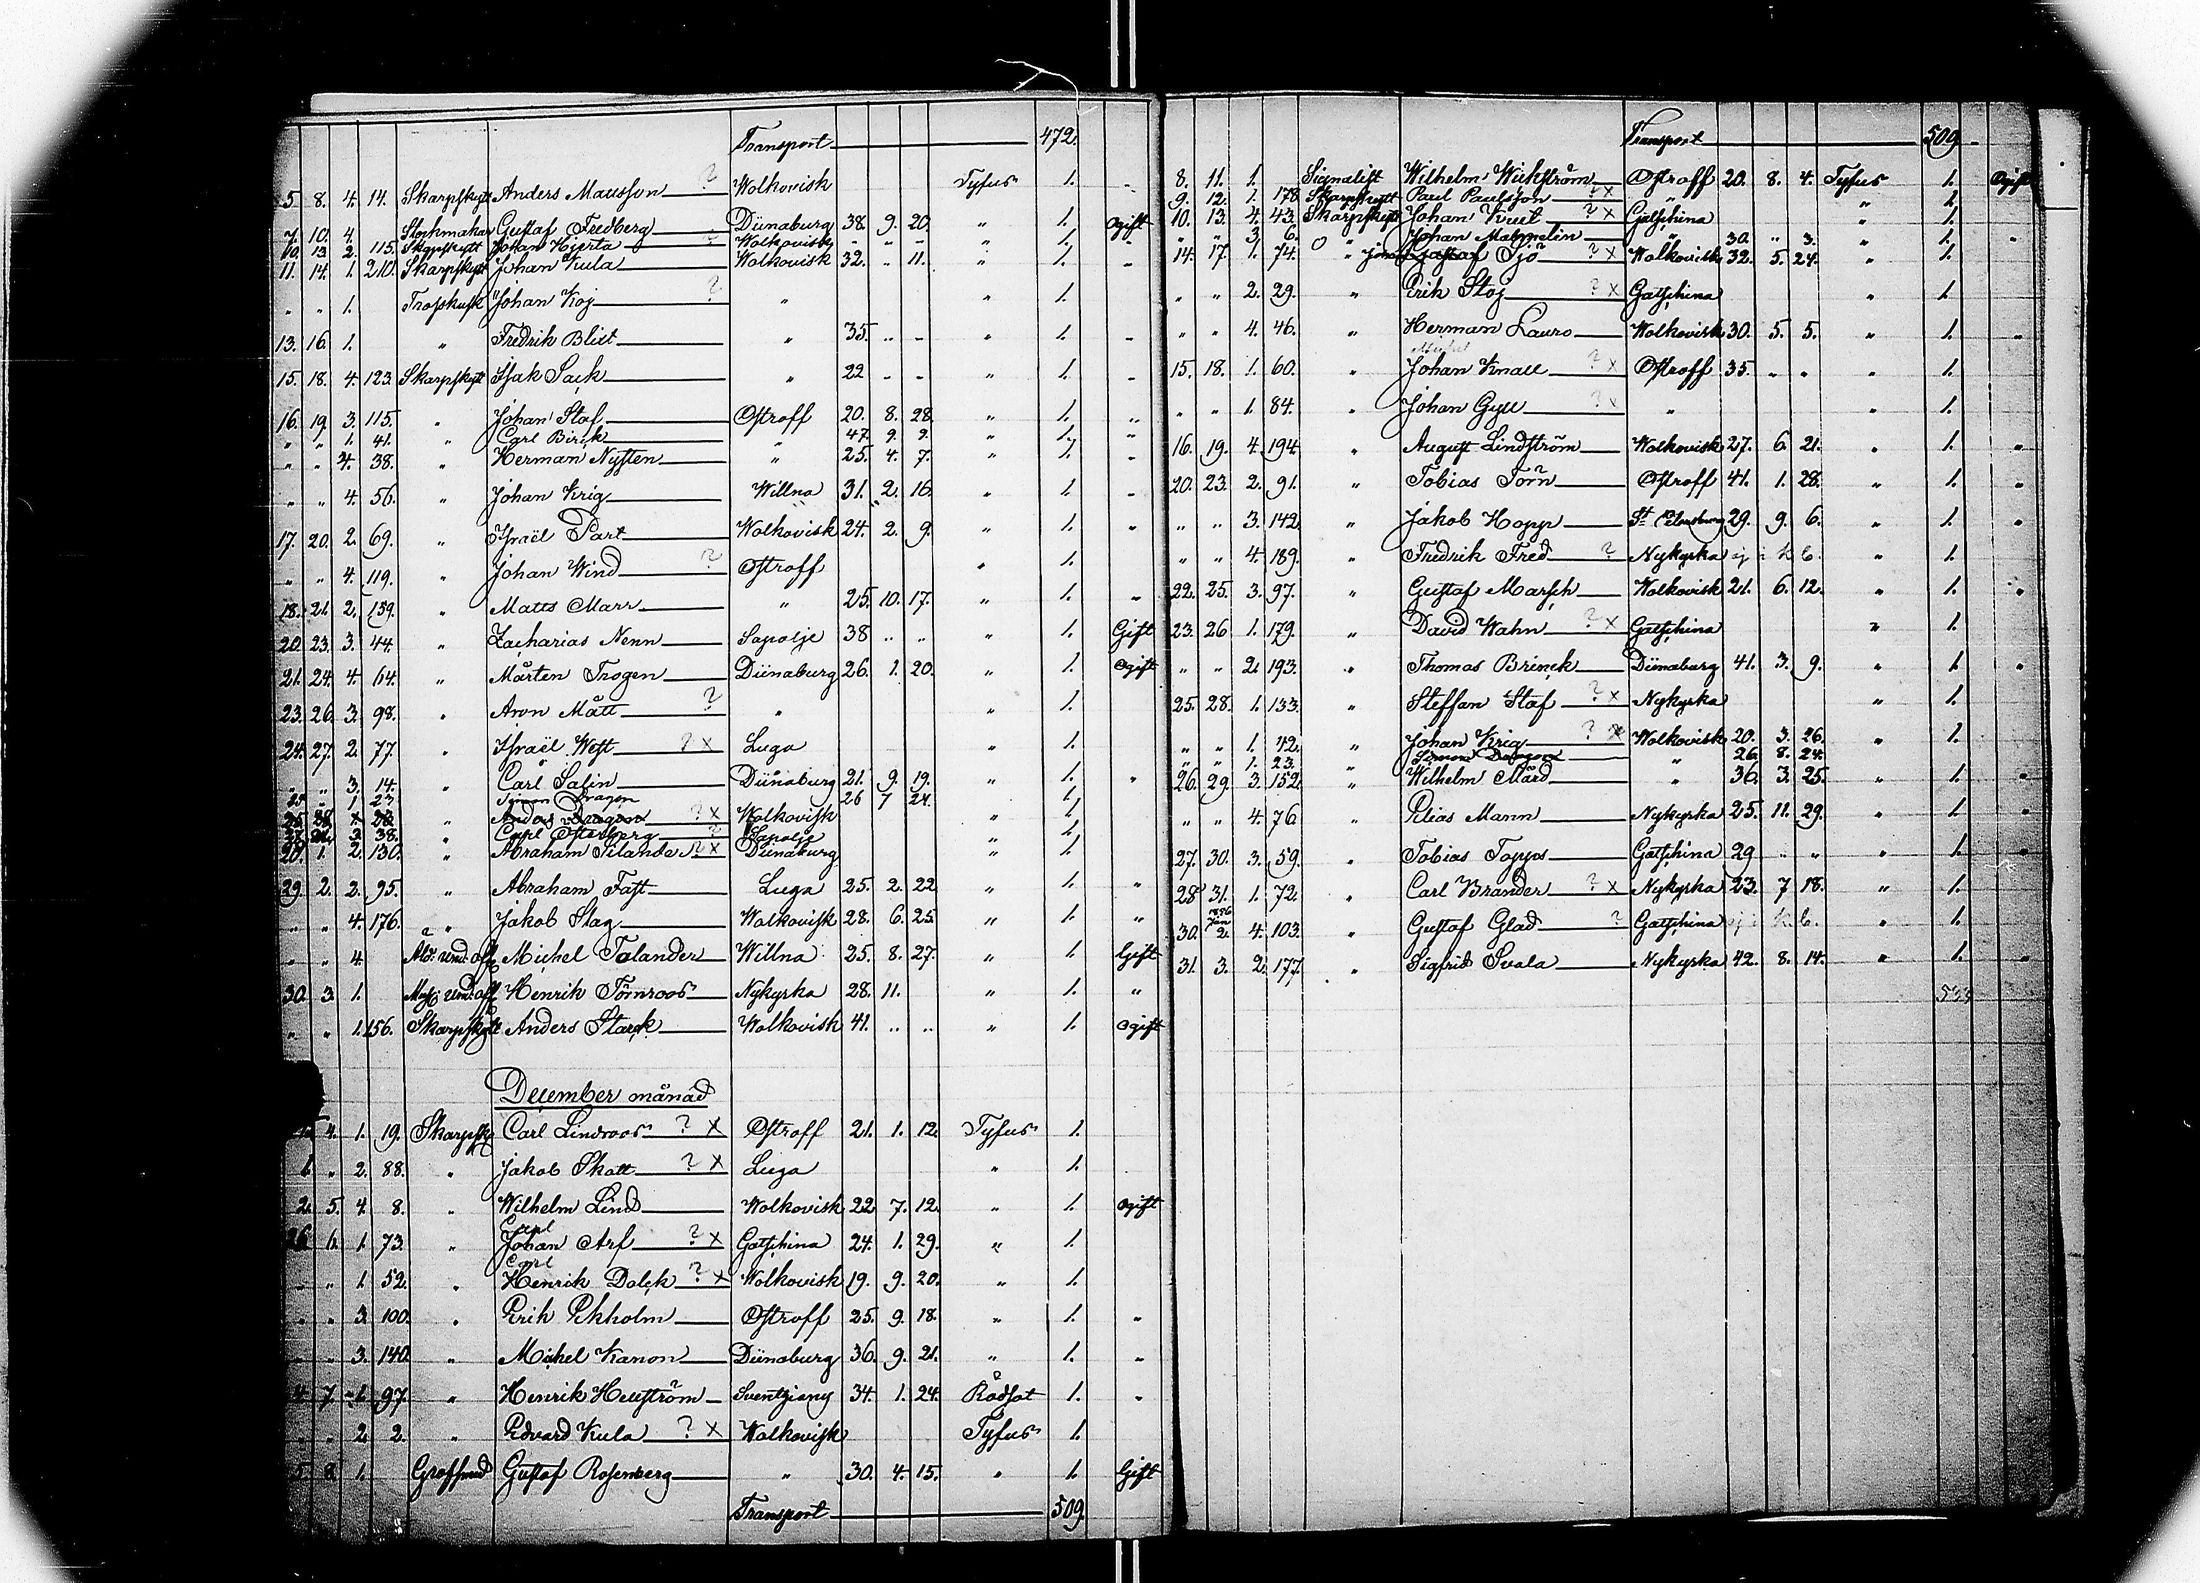 Transport 472.
5. 8. 4. 14. Skarpskytt Anders Mattsson ? Wolkovisk Tyfus 1. "
7. 10. 4. Stockmakar Gustaf Fredberg Dünaburg 38. 9. 20. " 1. ogift
10. 13. 2. 115. Skarpskytt Johan Hjerta ? Wolkovisk " " " " 1. "
11. 14. 1. 210. Skarpskytt Johan Kula Wolkovisk 32. " 11. " 1. "
" " 1. Trosskusk Johan Koj ? " " 1.
13. 16. 1. " Fredrik Blixt " 35. " " " 1. "
15. 18. 4. 123. Skarpskytt Isak Sack " 22 " " " 1. "
16. 19. 3. 115. " Johan Staf Ostroff 20. 8. 28. " 1. "
" " 1. 41. " Carl Birck " 47. 9. 9. " 1. "
" " 4. 38. " Herman Nysten " 25. 4. 7. " 1. "
" " 4. 56. " Johan Krig Willna 31. 2. 16. " 1. "
17. 20. 2. 69. " Israël Part Wolkovisk 24. 2. 9. " 1. "
" " 4. 119. " Johan Wind ? Ostroff " 1.
18. 21. 2. 139. " Matts Marr " 25. 10. 17. " 1. "
20. 23. 3. 44. " Zacharias Nenn Sapolje 38 " " " 1. Gift
21. 24. 4. 64. " Mårten Trogen Dünaburg 26. 1. 20. " 1. ogift
23. 26. 3. 98. " Aron Mått ? " " 1.
24. 27. 2. 77. " Israël West ? x Luga " 1.
" " 3. 14. " Carl Salin Dünaburg 21. 9. 19. " 1. "
25 " 1. 23 Simon Dragon 26 7 24. 1.
25 28 1. 23 " Anders Dragon ? x Wolkovisk " 1.
3. 38. " Carl Österberg ? Sapolje " 1.
1. 2. 130. " Abraham Silander ? x Dünaburg " 1.
29. 2. 2. 95. " Abraham Fast Luga 25. 2. 22 " 1. "
" " 4. 176. " Jakob Stag Wolkovisk 28. 6. 25. " 1. "
" " 4. Äld. und. off. Michel Talander Willna 25. 8. 27. " 1. Gift
30. 3. 1. und. off. Henrik Törnroos Nykyrka 28. 11. " 1. "
" " 1. 156. Skarpskytt Anders Starck Wolkovisk 41. " " " 1. ogift
December månad
4. 1. 19. Skarpsky Carl Lindroos ? x Ostroff 21. 1. 12. Tyfus 1.
1. " 2. 88. " Jakob Skatt ? x Luga " 1.
2. 5. 4. 8. " Wilhelm Lind Wolkovisk 22 7. 12. " 1. ogift
Carl
6. 1. 73. " Johan Arf ? x Gatschina 24. 1. 29. " 1.
Carl
" " 1. 52. " Henrik Dolck ? x Wolkovisk 19. 9. 20. " 1.
" " 3. 100. " Erik Ekholm Ostroff 25. 9. 18. " 1. "
" " 3. 140. " Michel Kanon Dünaburg 36. 9. 21. " 1. "
4. 7. 1. 97. " Henrik Hellström Sventziany 34. 1. 24. Rödsot 1. "
" " 2. 2. " Edvard Kula ? x Wolkovisk Tyfus 1.
5. 8. 1. Gustaf Rosenberg " 30. 4. 15. " 1. Gift
Transport 509.
Transport 509.
8. 11. 1. Signalist Wilhelm Wickström Ostroff 20. 8. 4. Tyfus 1. Ogift
9. 12. 1. 178. Skarpskytt Paul Paulsson ? x " " 1.
10. 13. 4. 43. Skarpskytt Johan Knut ? x Gatschina " 1.
" " 3. 6. " Johan Malmelin " 30. " 3. " 1. "
14. 17. 1. 74. " Johan Gustaf Sjö ? x Wolkovisk 32. 5. 24. " 1.
" " 2. 29. " Erik Stoj ? x Gatschina " 1.
" " 4. 46. " Herman Lauro Wolkovisk 30. 5. 5. " 1. "
Michel
15. 18. 1. 60. " Johan Knall ? x Ostroff 35. " " " 1.
" " 1. 84. " Johan Gyll ? x " " 1.
16. 19. 4. 194. " August Lindström Wolkovisk 27. 6. 21. " 1. "
20. 23. 2. 91. " Tobias Törn Ostroff 41. 1. 28. " 1. "
" " 3. 142. " Jakob Hopp St Petersburg 29. 9. 6. " 1. "
" " 4. 189. " Fredrik Fred ? Nykyrka ej i k b. " 1.
22. 25. 3. 97. " Gustaf Marsch Wolkovisk 21. 6. 12. " 1. "
23. 26 1. 179. " David Wahn ? x Gatschina " 1.
" " 2. 193. " Thomas Brinck Dünaburg 41. 3. 9. " 1. "
25. 28. 1. 133. " Steffan Staf ? x Nykyrka " 1.
" " 1. 42. " Johan Krig ? x Wolkovisk 20. 3. 26. " 1.
" " 1. 23. " Simon Dragon " 26. 8. 24.
26. 29. 3. 152. " Wilhelm Mård " 36. 3. 25. " 1. "
" " 4. 76. " Elias Mann Nykyrka 25. 11. 29. " 1. "
27. 30. 3. 59. " Tobias Topps Gatschina 29 " " " 1. "
28. 31. 1. 72. " Carl Brander ? x Nykyrka 23. 7 18. " 1.
1856 Jan
30. 2. 4. 103. " Gustaf Glad ? Gatschina ej i k b. " 1.
31. 3. 2. 177. " Sigfrid Svala Nykyrka 42. 8. 14. " 1. "
533